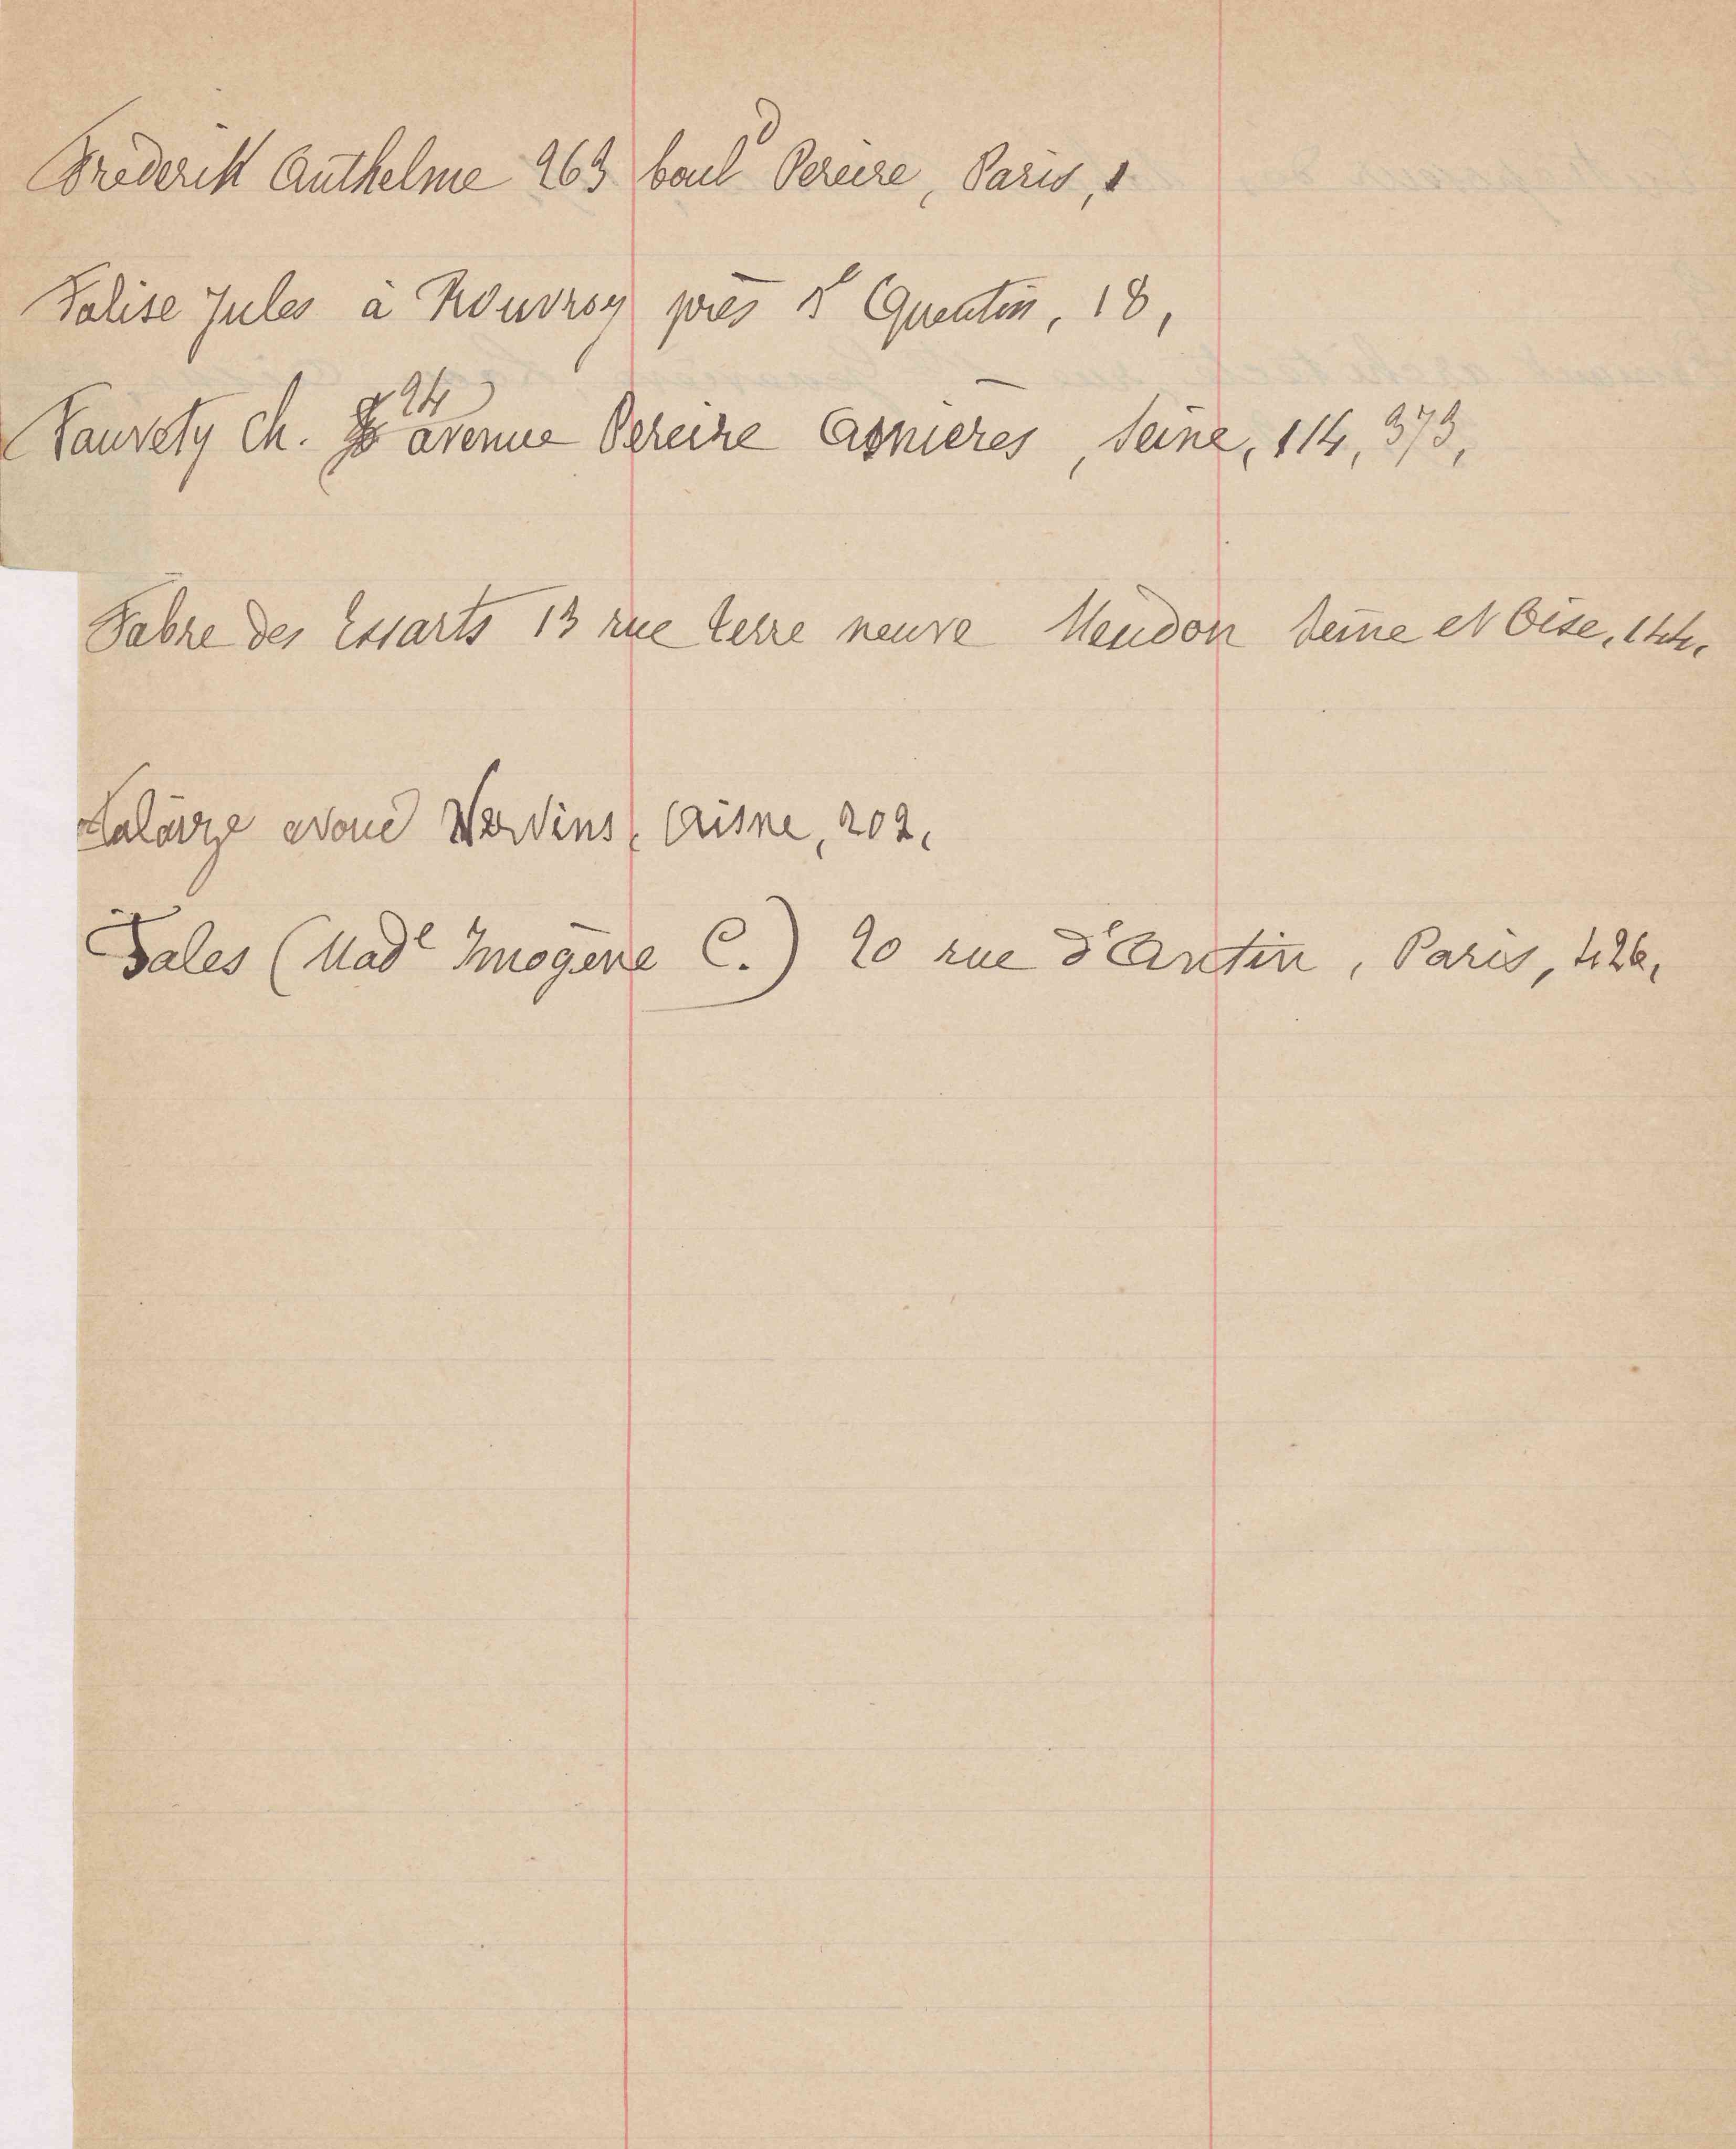 Frederik Anthelme 263 boul^d Pereire, Paris, 1
Falise Jules à Rouvroy près S^t Quentin, 18,
Fauvety Ch. 24 avenue Pereire Asnieres, Seine, 114, 373,
Fabre des Essarts 13 rue terre neuve Meudon Seine et Oise, 144.
avoué Vervins, Aisne, 202,
Fales (Mad^e Imogène C.) 20 rue d'Antin, Paris, 426,